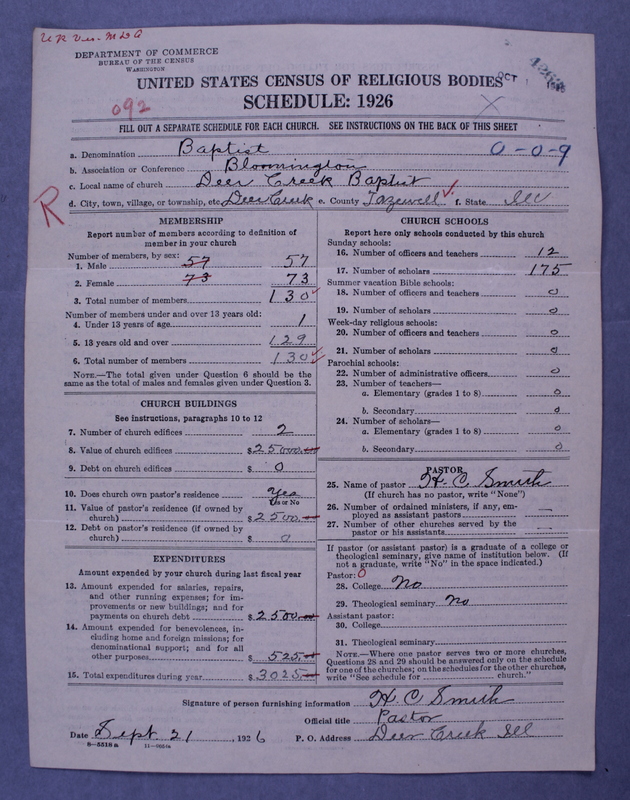 DEPARTMENT OF COMMERCE
BUREAU OF THE CENSUS
WASHINGTON
OCT
UNITED STATES CENSUS OF RELIGIOUS BODIES
SCHEDULE: 1926
092
FILL OUT A SEPARATE SCHEDULE FOR EACH CHURCH. SEE INSTRUCTIONS ON THE BACK OF THIS SHEET
a. Denomination Baptist
0-0-9
b. Association or Conference Bloomington
c. Local name of church Deer Creek Baptist
R
d. City, town, village, or township, etc. Deer Creek e. County Tazewell f. State Ill
MEMBERSHIP
Report number of members according to definition of
member in your church
Number of members, by sex:
1. Male 57 57
2. Female 73 73
3. Total number of members 130
Number of members under and over 13 years old:
4. Under 13 years of age 1
5. 13 years old and over 129
6. Total number of members 130
NOTE.—The total given under Question 6 should be the
same as the total of males and females given under Question 3.
CHURCH BUILDINGS
See instructions, paragraphs 10 to 12
7. Number of church edifices 2
8. Value of church edifices $25000.00
9. Debt on church edifices $ 0
10. Does church own pastor's residence Yes
Yes or No
11. Value of pastor's residence (if owned by
church) $2500.00
12. Debt on pastor's residence (if owned by
church) $ 0
EXPENDITURES
Amount expended by your church during last fiscal year
13. Amount expended for salaries, repairs,
and other running expenses; for im-
provements or new buildings; and for
payments on church debt $2500.00
14. Amount expended for benevolences, in-
cluding home and foreign missions; for
denominational support; and for all
other purposes $525.00
15. Total expenditures during year $3025.00
CHURCH SCHOOLS
Report here only schools conducted by this church
Sunday schools:
16. Number of officers and teachers 12
17. Number of scholars 175
Summer vacation Bible schools:
18. Number of officers and teachers 0
19. Number of scholars 0
Week-day religious schools:
20. Number of officers and teachers 0
21. Number of scholars 0
Parochial schools:
22. Number of administrative officers 0
23. Number of teachers—
a. Elementary (grades 1 to 8) 0
b. Secondary 0
24. Number of scholars—
a. Elementary (grades 1 to 8) 0
b. Secondary 0
PASTOR
25. Name of pastor H. C. Smith
(If church has no pastor, write "None")
26. Number of ordained ministers, if any, em-
ployed as assistant pastors —
27. Number of other churches served by the
pastor or his assistants —
If pastor (or assistant pastor) is a graduate of a college or
theological seminary, give name of institution below. (If
not a graduate, write "No" in the space indicated.)
Pastor: 0
28. College No
29. Theological seminary No
Assistant pastor:
30. College
31. Theological seminary
NOTE.—Where one pastor serves two or more churches,
Questions 28 and 29 should be answered only on the schedule
for one of the churches; on the schedules for the other churches,
write "See schedule for church."
Signature of person furnishing information H. C. Smith
Official title Pastor
Date Sept. 21, 1926 P. O. Address Deer Creek Ill
8-5518a